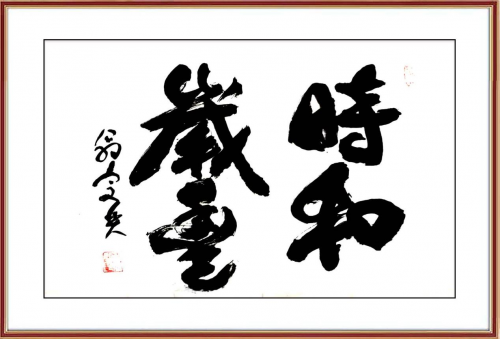 時和
歲豐
翁